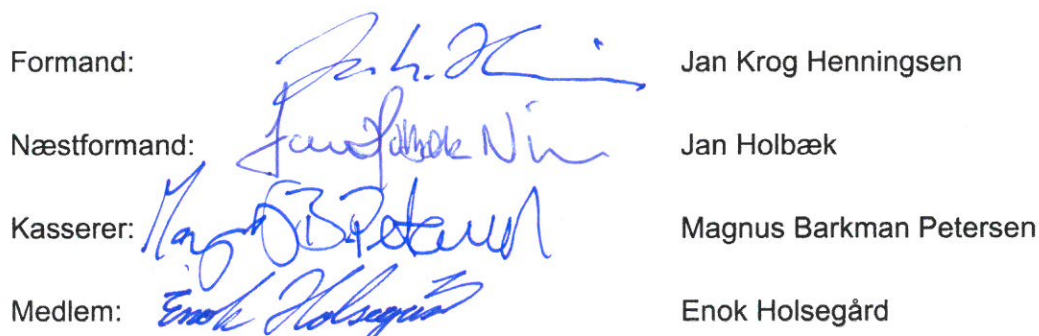 Formand: Jan Krog Henningsen
Næstformand: Jan Holbæk Jan Holbæk
Kasserer: Magnus B Petersen Magnus Barkman Petersen
Medlem: Enok Holsegård Enok Holsegård